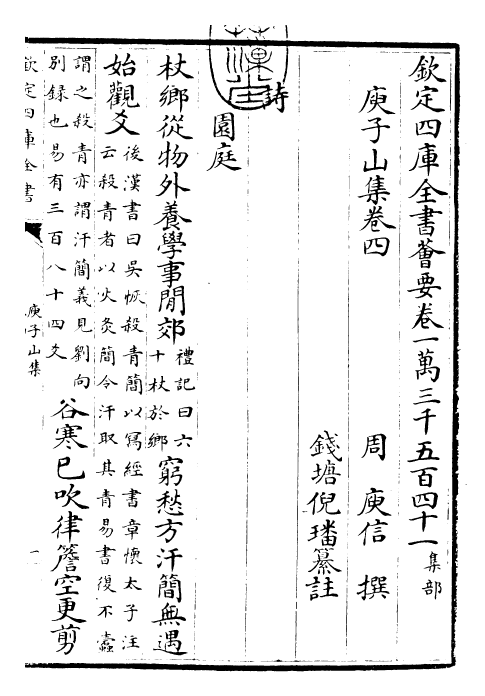 欽定四庫全書薈要卷一萬三千五百四十一集部
庾子山集卷四
周　庾信　撰
錢塘倪璠纂註
詩
園庭
杖鄉從物外養學事閒郊禮記曰六十杖於鄉窮愁方汗簡無遇
始觀爻後漢書曰吳恢殺青簡以寫經書章懷太子注云殺青者以火炙簡令汗取其青易書復不蠹
謂之殺青亦謂汗簡義見劉向別録也易有三百八十四爻谷寒已吹律簷空更剪
欽定四庫全書
庾子山集
一